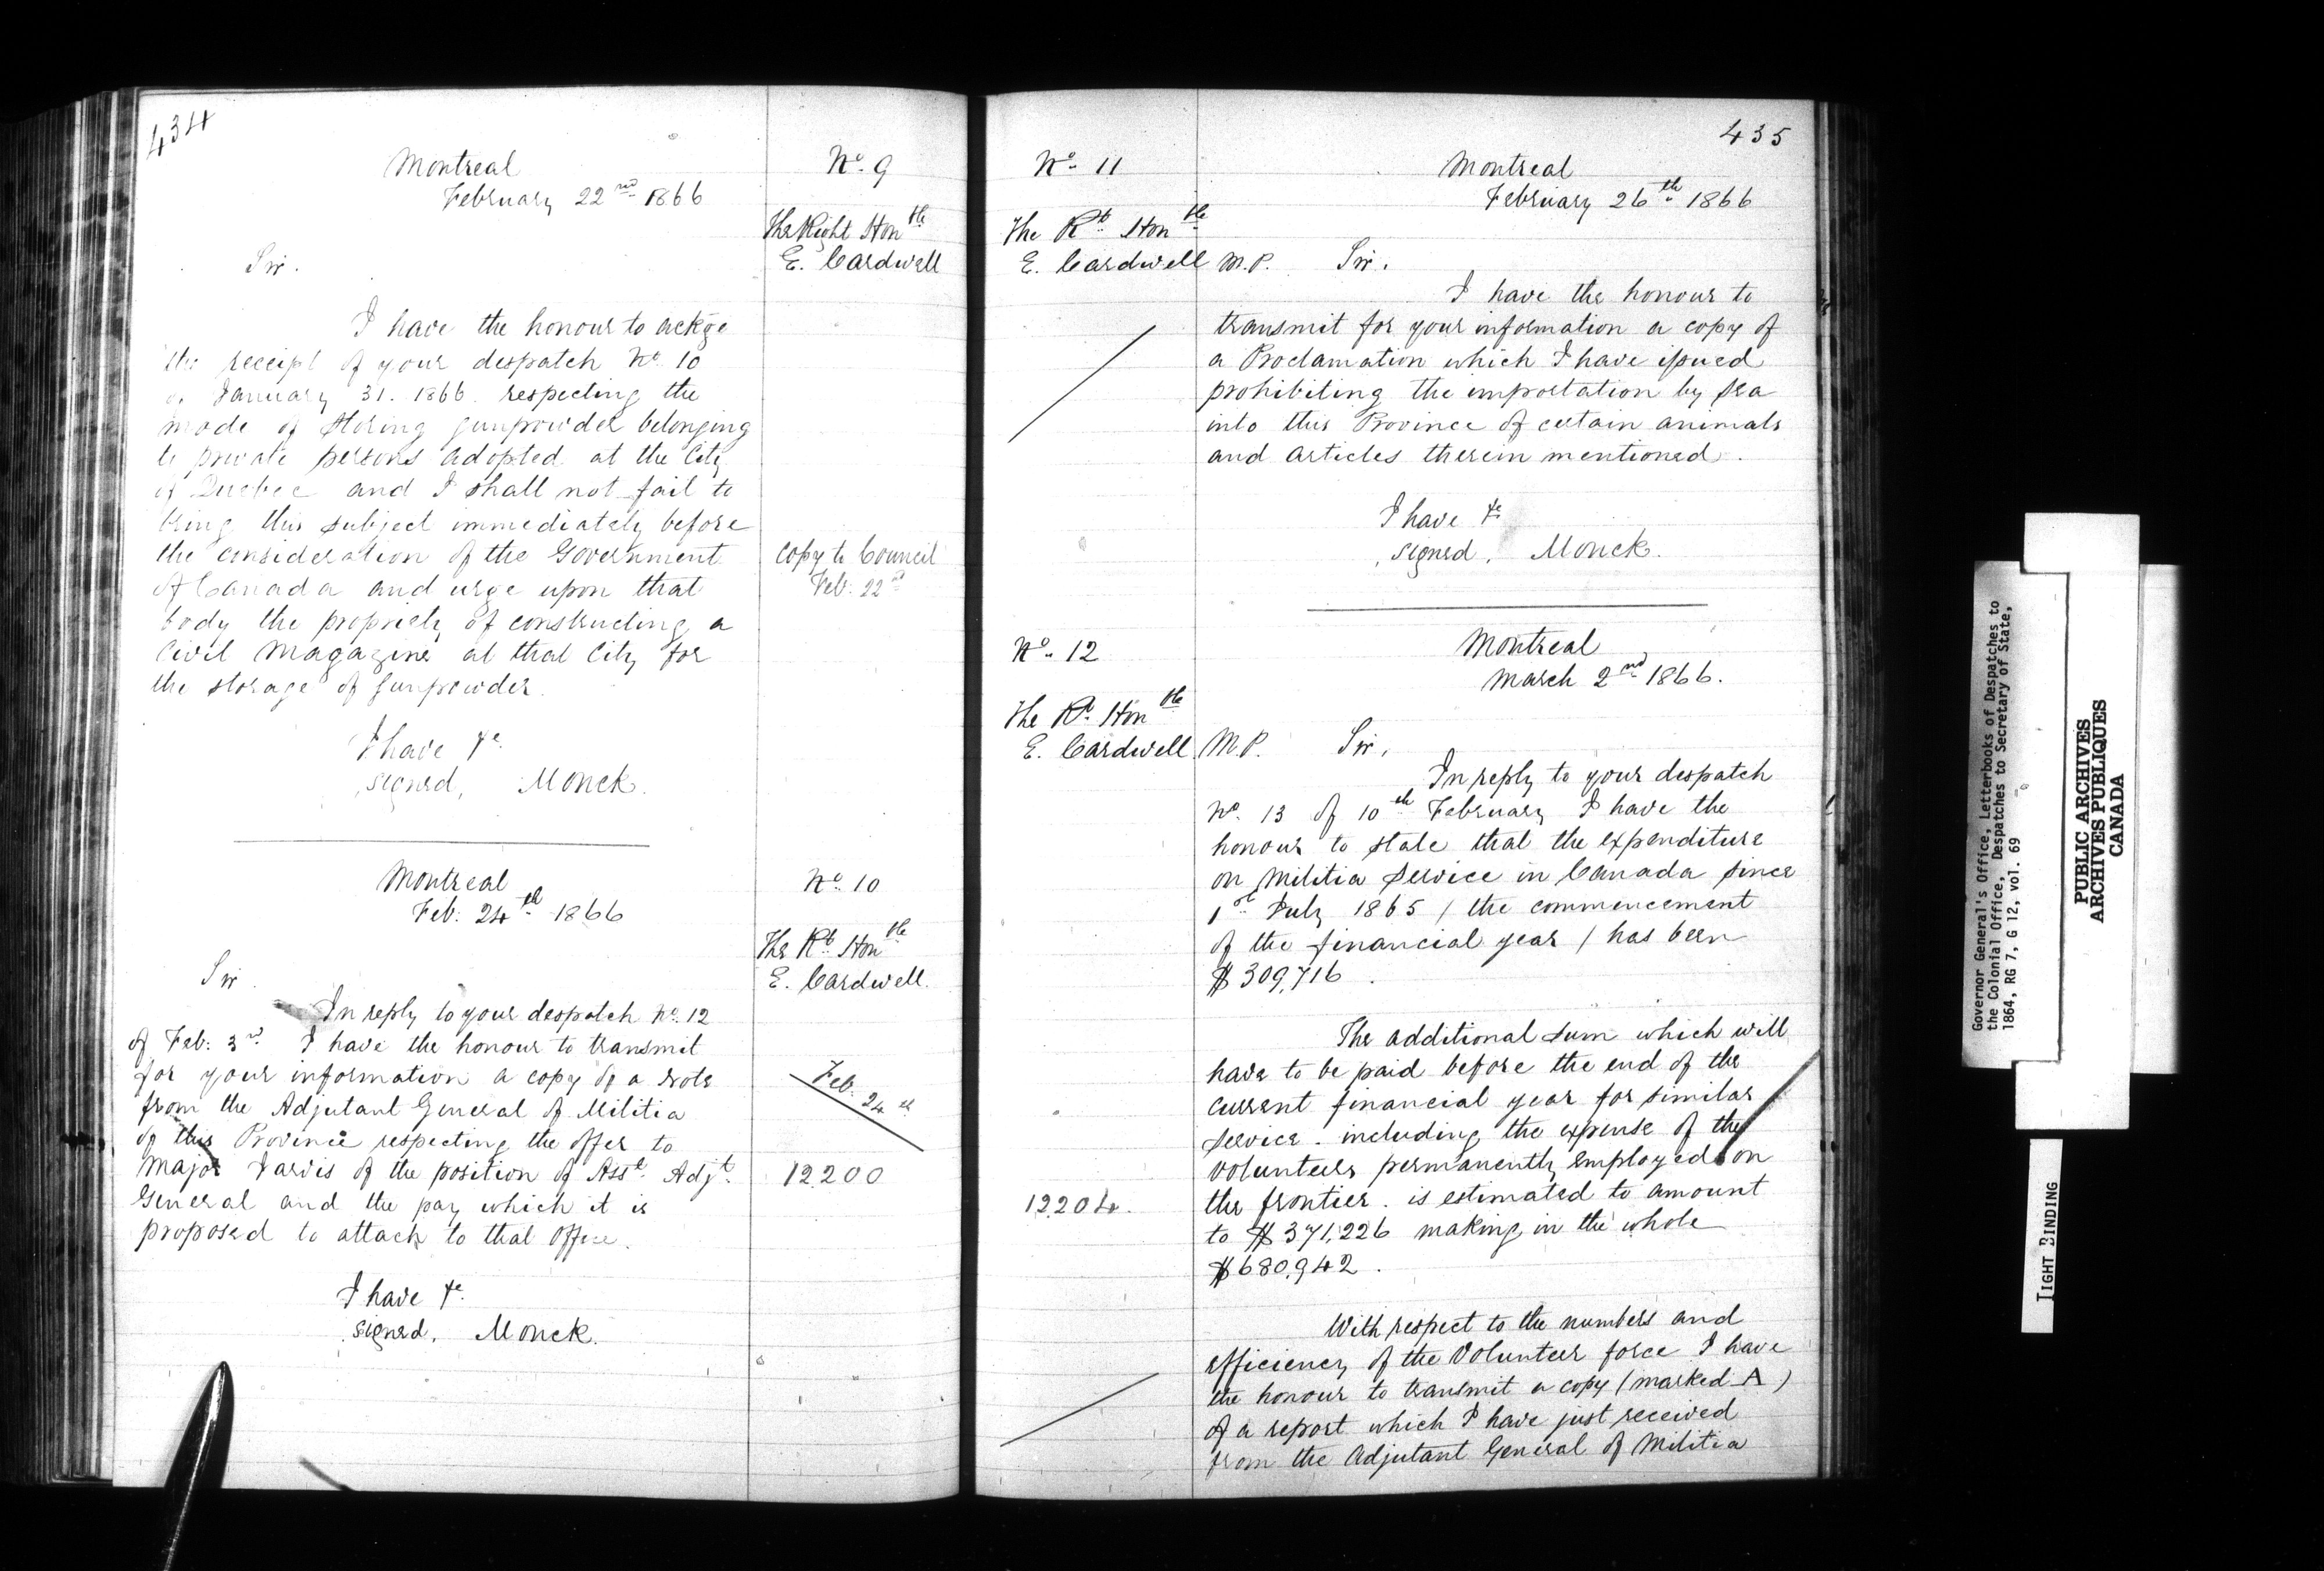 434
Montreal
February 22nd 1866
No. 9
The Right Honble
E. Cardwell
Sir.
I have the honour to ackge
the receipt of your despatch No. 10
of January 31. 1866. respecting the
mode of storing gunpowder belonging
to private persons adopted at the City
of Quebec and I shall not fail to
bring this subject immediately before
the consideration of the Government
of Canada and urge upon that
body the propriety of constructing a
Civil Magazine at that City for
the storage of gunpowder.
Copy to Council
Feb. 22nd
I have &c.
signed, Monck.
Montreal
Feb. 24th 1866
No. 10
The Rt. Honble
E. Cardwell.
Sir.
In reply to your despatch No. 12
of Feb: 3rd I have the honour to transmit
for your information a copy of a note
from the Adjutant General of Militia
of this Province respecting the offer to
Major Jarvis of the position of Asst. Adjt.
General and the pay which it is
proposed to attach to that Office.
Feb. 24th
12200
I have &c.
signed, Monck.
435
No. 11
Montreal
February 26th 1866
The Rt. Honble
E. Cardwell M.P. Sir,
I have the honour to
transmit for your information a copy of
a Proclamation which I have issued
prohibiting the importation by sea
into this Province of certain animals
and articles therein mentioned.
I have &c
signed, Monck.
No. 12
Montreal
March 2nd 1866.
The Rt. Honble
E. Cardwell M.P. Sir,
In reply to your despatch
No. 13 of 10th February I have the
honour to state that the expenditure
on Militia Service in Canada since
1st July 1865 / the commencement
of the financial year / has been
$309,716.
The additional sum which will
have to be paid before the end of the
current financial year for similar
service. including the expense of the
Volunteers permanently employed on
the frontier. is estimated to amount
to $371,226 making in the whole
$680,942.
12204.
With respect to the numbers and
efficiency of the Volunteer force I have
the honour to transmit a copy (marked A)
of a report which I have just received
from the Adjutant General of Militia
Governor General's Office, Letterbooks of Despatches to
the Colonial Office, Despatches to Secretary of State,
1864, RG 7, G 12, vol. 69
PUBLIC ARCHIVES
ARCHIVES PUBLIQUES
CANADA
TIGHT BINDING